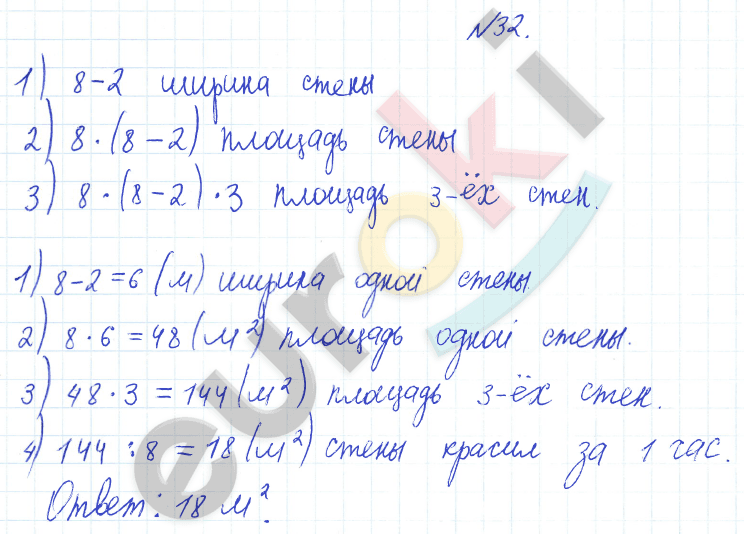 №32.
1) 8-2 ширина стены
2) 8·(8-2) площадь стены
3) 8·(8-2)·3 площадь 3-ёх стен.
1) 8-2=6 (м) ширина одной стены
2) 8·6=48 (м²) площадь одной стены.
3) 48·3=144 (м²) площадь 3-ёх стен.
4) 144:8=18 (м²) стены красил за 1 час.
Ответ: 18 м².
euroki